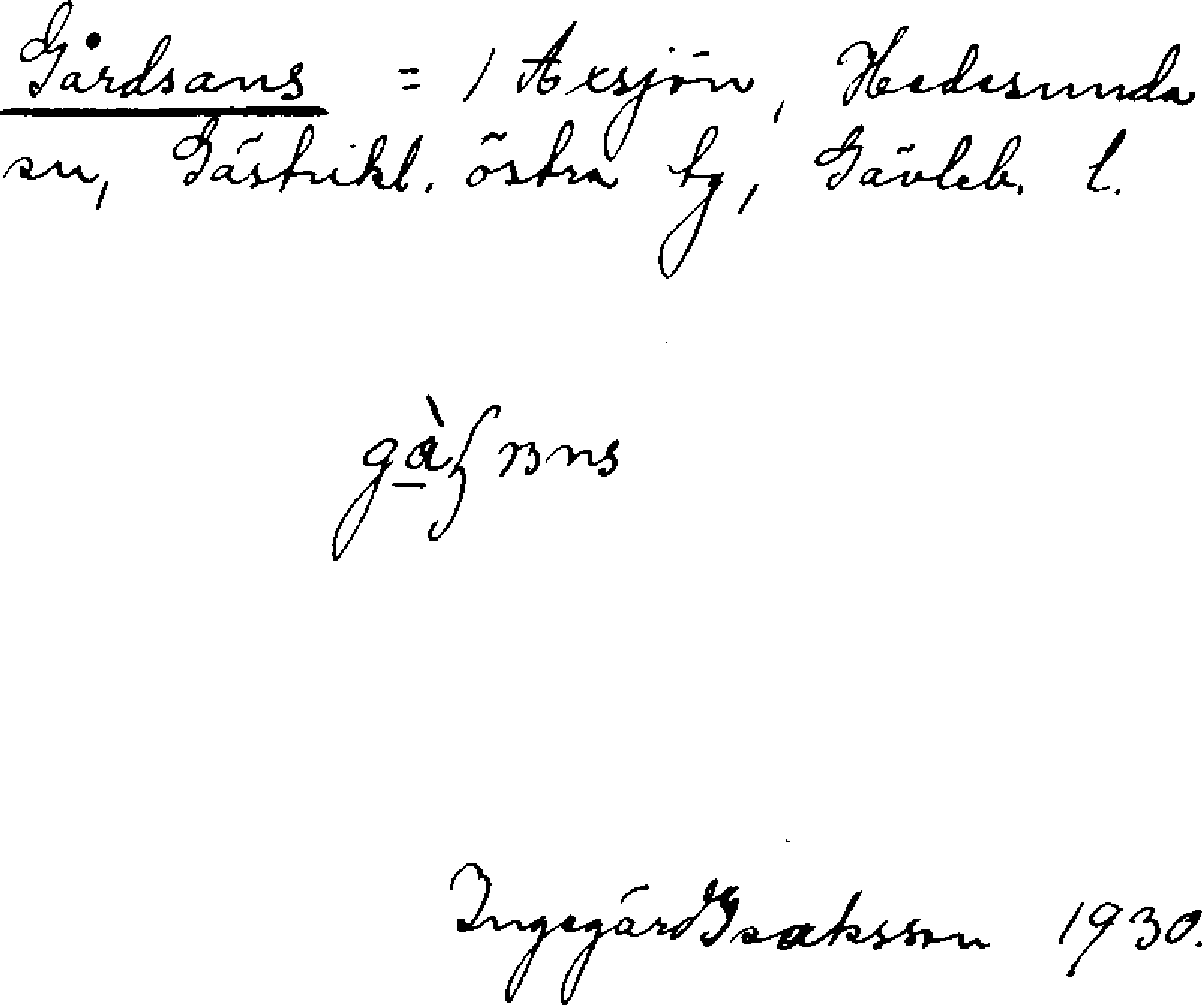 Gårdsans = 1 Axsjön, Hedesunda
sn, Gästrikl. östra tg, Gävleb. l.
Ingegärd Isaksson 1930.